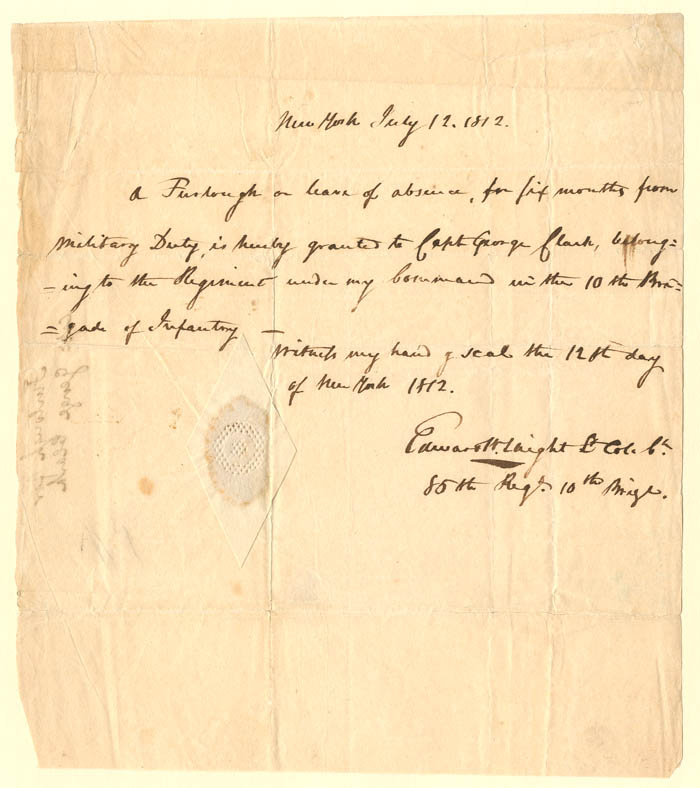 New York July 12. 1812.
A Furlough or leave of absence, for six months from
Military Duty, is hereby granted to Capt George Clark, belong=
=ing to the Regiment under my Command in the 10th Bri=
=gade of Infantry —
Witness my hand & seal the 12th day
of New York 1812.
Edward W. Laight Lt Col. Ct.
85th Regt. 10th Brige.
George Clark